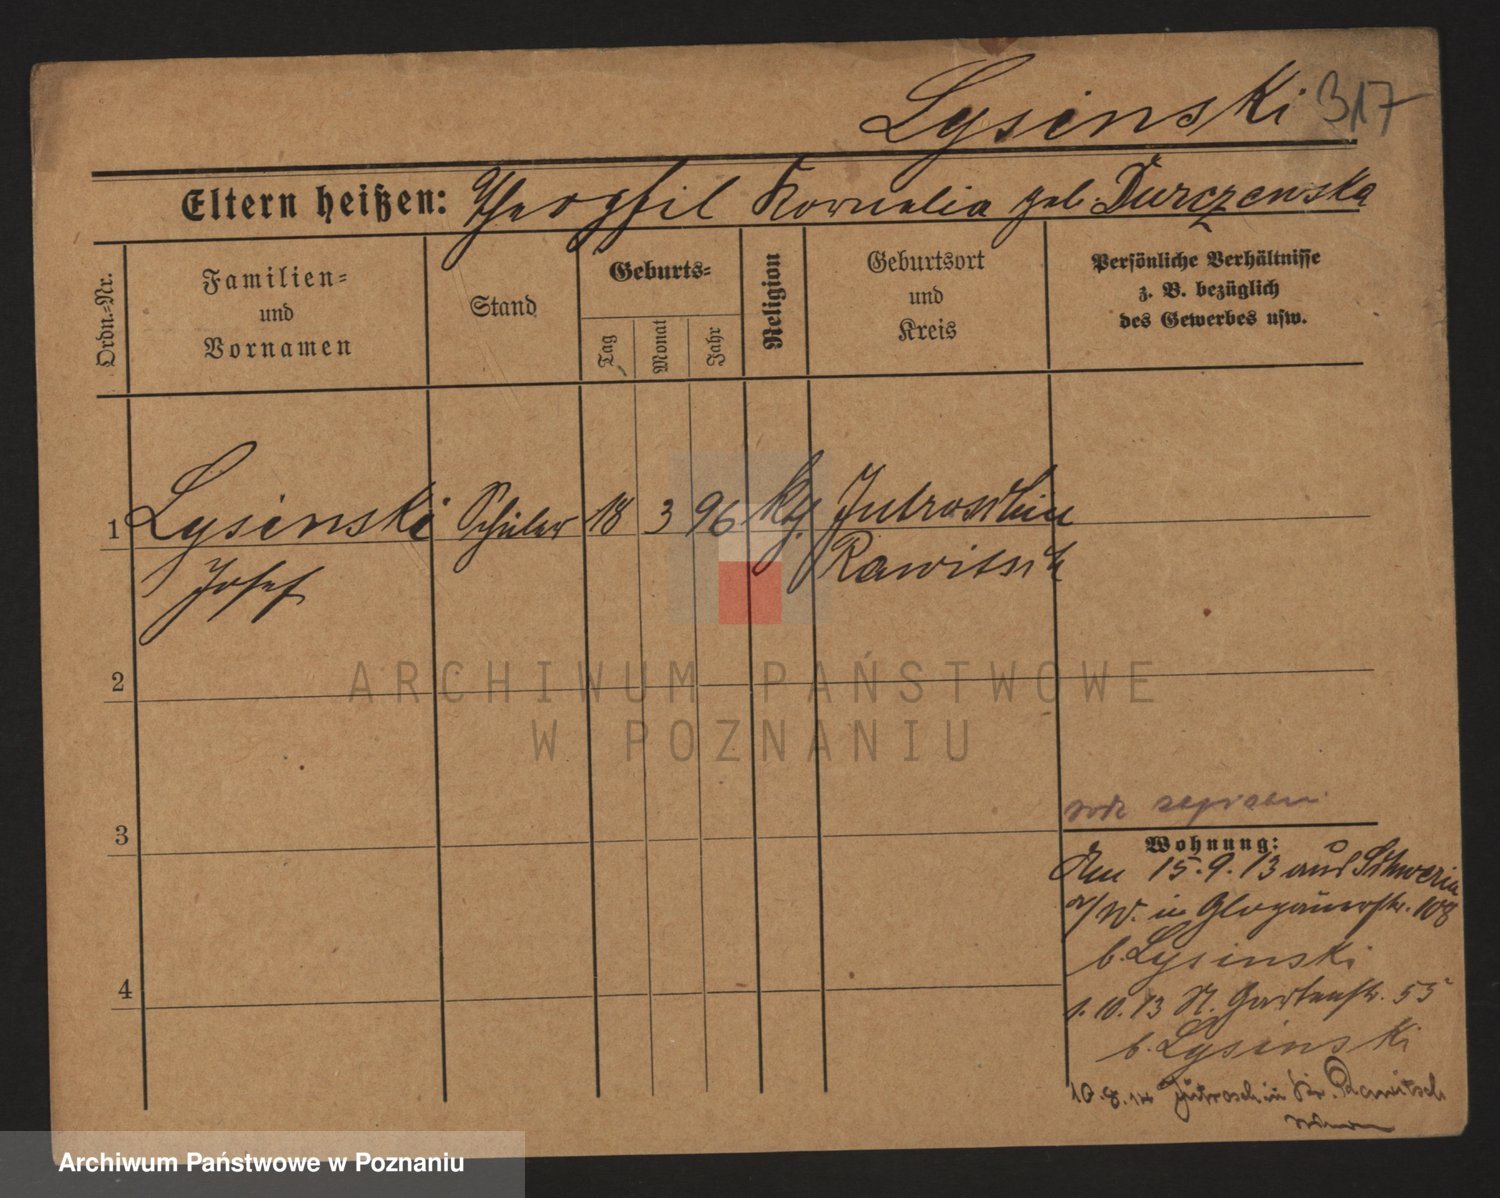 Lysinski 317
Eltern heißen: Theophil Kornelia geb. Durczewska
Ordn.-Nr.
Familien-
und
Vornamen
Stand
Geburts-
Tag
Monat
Jahr
Religion
Geburtsort
und
Kreis
Persönliche Verhältnisse
z. B. bezüglich
des Gewerbes usw.
1 Lysinski Schüler 18 3 96 kg. Jutroschin
Josef Rawitsch
2
3
4
Wohnung:
Am 15.9.13 aus Schwerin
a/W. in Glogauerstr. 108
b. Lysinski
1.10.13 N. Gartenstr. 55
b. Lysinski
10.8.14 Jutroschin Kr. Rawitsch
ARCHIWUM PAŃSTWOWE
W POZNANIU
Archiwum Państwowe w Poznaniu